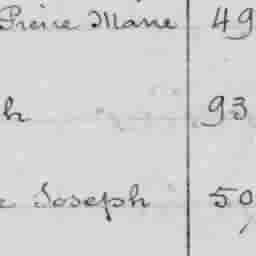 Pierre Marie 49
h 93
e Joseph 50